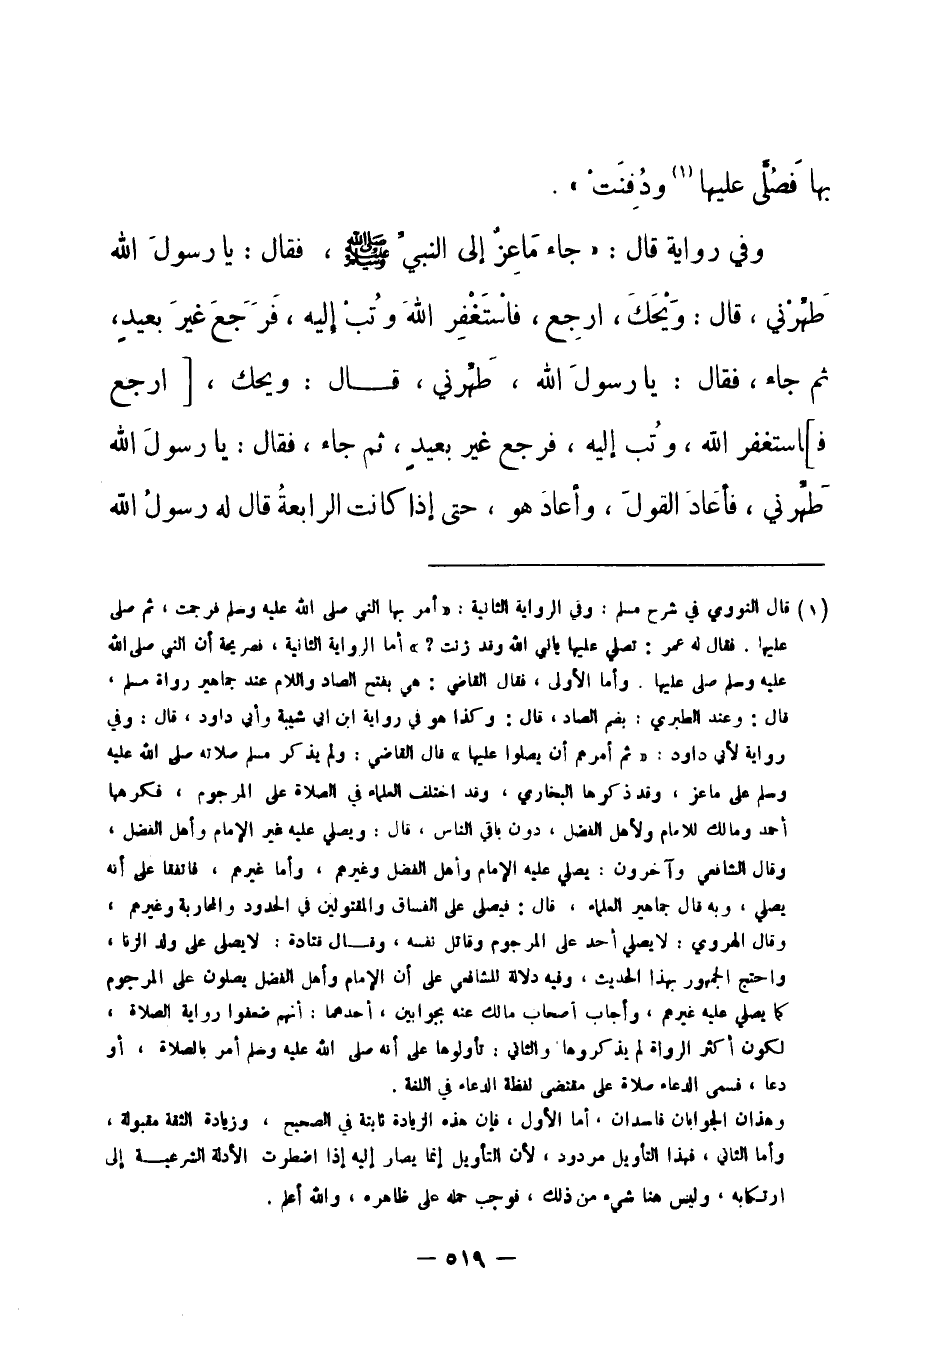 بها فَصُلَّى عليها (١) ودُفِنَتْ » .
وفي رواية قال : « جاء مَاعِزٌ إلى النبيِّ ﷺ ، فقال : يا رسولَ الله
طَهِّرْني ، قال : وَيْحَكَ ، ارجِع ، فاسْتَغْفِرِ اللهَ وتُبْ إليه ، فَرَجَعَ غيرَ بعيدٍ،
ثم جاء ، فقال : يا رسولَ الله ، طَهِّرني ، قـــال : ويحك ، [ ارجع
فـ]استغفر الله ، وتُب إليه ، فرجع غير بعيدٍ ، ثم جاء ، فقال : يا رسولَ الله
طَهِّرني ، فأعَادَ القولَ ، وأعادَ هو ، حتى إذا كانت الرابعةُ قال له رسولُ الله
(١) قال النووي في شرح مسلم : وفي الرواية الثانية : « أمر بها النبي صلى الله عليه وسلم فرجمت ، ثم صلى
عليها . فقال له عمر : تصلي عليها يا نبي الله وقد زنت ؟ » أما الرواية الثانية ، فصريحة أن النبي صلى الله
عليه وسلم صلى عليها . وأما الأولى ، فقال القاضي : هي بفتح الصاد واللام عند جماهير رواة مسلم ،
قال : وعند الطبري : بضم الصاد ، قال : وكذا هو في رواية ابن ابي شيبة وأبي داود ، قال : وفي
رواية لأبي داود : « ثم أمرهم أن يصلوا عليها » قال القاضي : ولم يذكر مسلم صلاته صلى الله عليه
وسلم على ماعز ، وقد ذكرها البخاري ، وقد اختلف العلماء في الصلاة على المرجوم ، فكرهها
أحمد ومالك للامام ولأهل الفضل ، دون باقي الناس ، قال : ويصلي عليه غير الإمام وأهل الفضل ،
وقال الشافعي وآخرون : يصلي عليه الإمام وأهل الفضل وغيرهم ، وأما غيرهم ، فاتفقا على أنه
يصلي ، وبه قال جماهير العلماء ، قال : فيصلى على الفساق والمقتولين في الحدود والمحاربة وغيرهم ،
وقال الهروي : لايصلي أحد على المرجوم وقاتل نفسه ، وقـــال قتادة : لايصلى على ولد الزنا ،
واحتج الجمهور بهذا الحديث ، وفيه دلالة للشافعي على أن الإمام وأهل الفضل يصلون على المرجوم
كما يصلي عليه غيرهم ، وأجاب أصحاب مالك عنه بجوابين ، أحدهما : أنهم ضعفوا رواية الصلاة ،
لكون أكثر الرواة لم يذكروها والثاني : تأولوها على أنه صلى الله عليه وسلم أمر بالصلاة ، أو
دعا ، فسمى الدعاء صلاة على مقتضى لفظة الدعاء في اللغة .
وهذان الجوابان فاسدان ، أما الأول ، فإن هذه الزيادة ثابتة في الصحيح ، وزيادة الثقة مقبولة ،
وأما الثاني ، فهذا التأويل مردود ، لأن التأويل إنما يصار إليه إذا اضطرت الأدلة الشرعيـــة إلى
ارتكابه ، وليس هنا شيء من ذلك ، فوجب حمله على ظاهره ، والله أعلم .
— ٥١٩ —